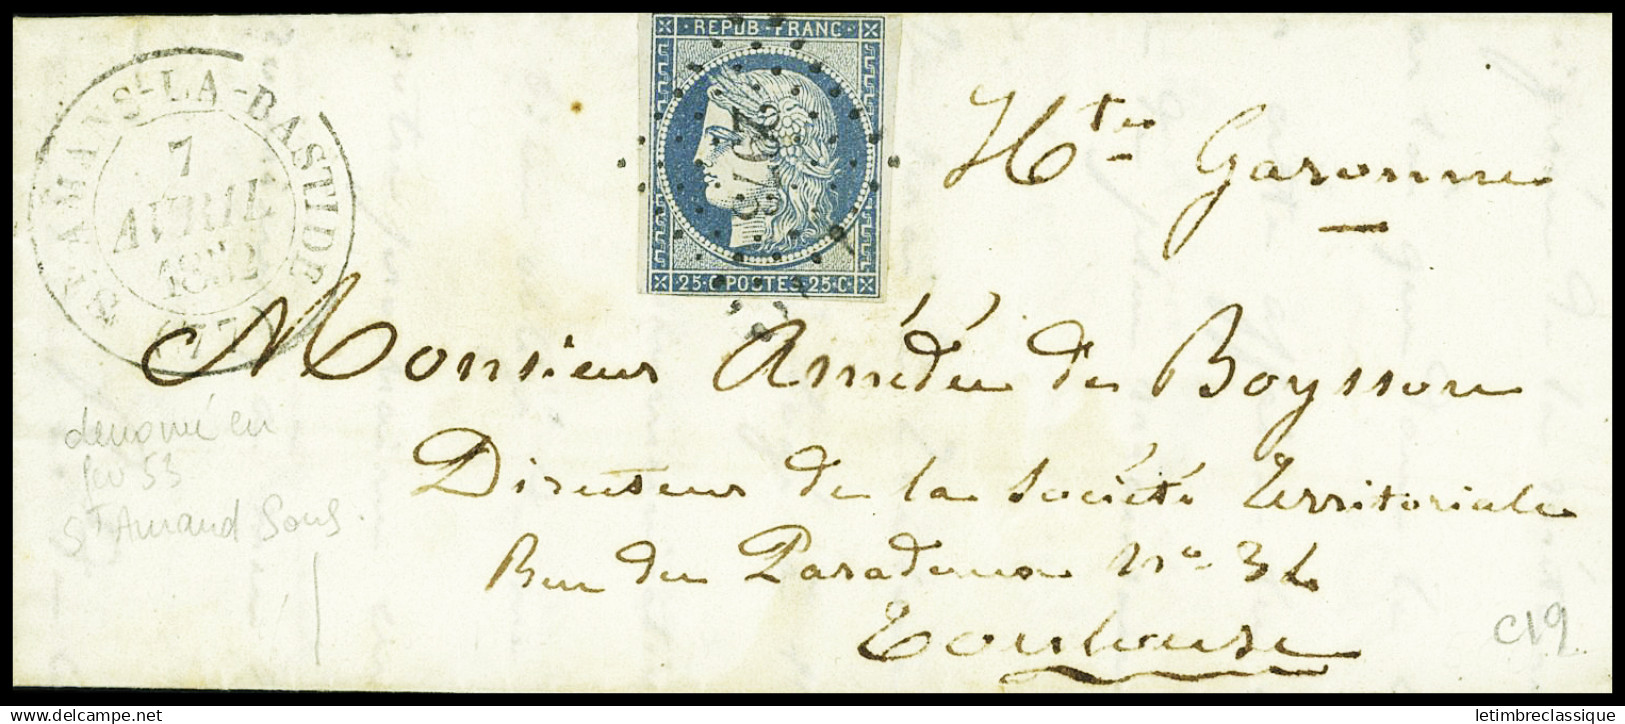 REPUB·FRANC
2978
25·C POSTES 25·C·
ST-AMANS-LA-BASTIDE
7
AVRIL
1852
(77)
Hte Garonne
Monsieur Amédée de Boysson
Directeur de la Société Territoriale
Rue des Paradoux n° 34
Toulouse
en
fev 53
St Amand Soult.
C19
delcampe.net
letimbreclassique